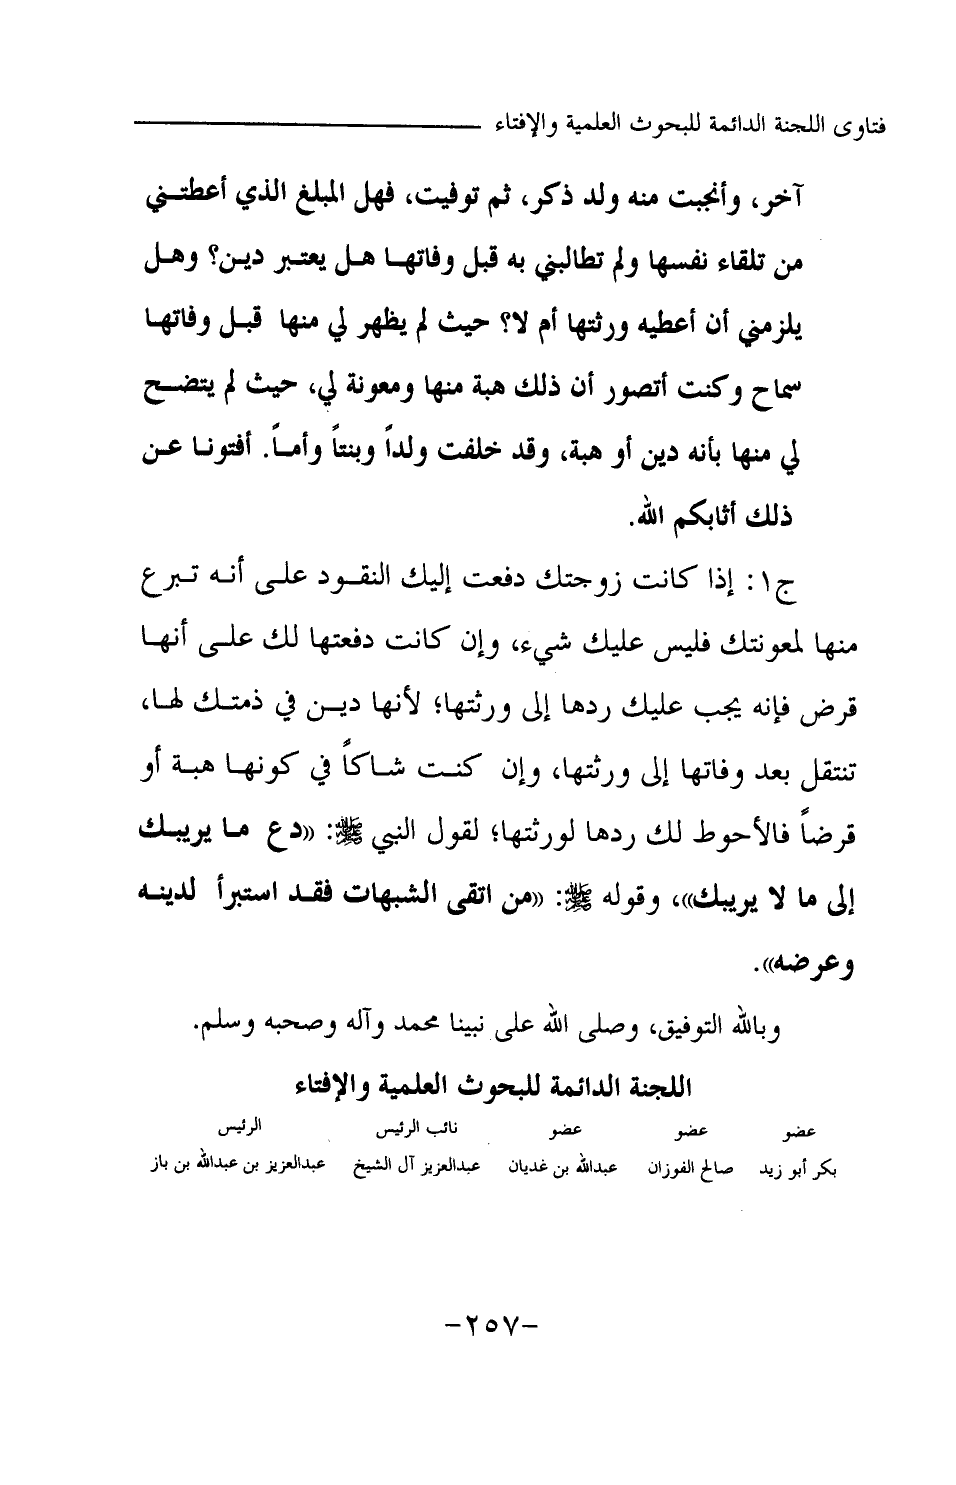 فتاوى اللجنة الدائمة للبحوث العلمية والإفتاء
آخر، وأنجبت منه ولد ذكر، ثم توفيت، فهل المبلغ الذي أعطتني
من تلقاء نفسها ولم تطالبني به قبل وفاتها هل يعتبر دين؟ وهل
يلزمني أن أعطيه ورثتها أم لا؟ حيث لم يظهر لي منها قبل وفاتها
سماح وكنت أتصور أن ذلك هبة منها ومعونة لي، حيث لم يتضح
لي منها بأنه دين أو هبة، وقد خلفت ولداً وبنتاً وأماً. أفتونا عن
ذلك أثابكم الله.
ج١: إذا كانت زوجتك دفعت إليك النقود على أنه تبرع
منها لمعونتك فليس عليك شيء، وإن كانت دفعتها لك على أنها
قرض فإنه يجب عليك ردها إلى ورثتها؛ لأنها دين في ذمتك لها،
تنتقل بعد وفاتها إلى ورثتها، وإن كنت شاكاً في كونها هبة أو
قرضاً فالأحوط لك ردها لورثتها؛ لقول النبي ﷺ: «دع ما يريبك
إلى ما لا يريبك»، وقوله ﷺ: «من اتقى الشبهات فقد استبرأ لدينه
وعرضه».
وبالله التوفيق، وصلى الله على نبينا محمد وآله وصحبه وسلم.
اللجنة الدائمة للبحوث العلمية والإفتاء
عضو عضو عضو نائب الرئيس الرئيس
بكر أبو زيد صالح الفوزان عبدالله بن غديان عبدالعزيز آل الشيخ عبدالعزيز بن عبدالله بن باز
-٢٥٧-